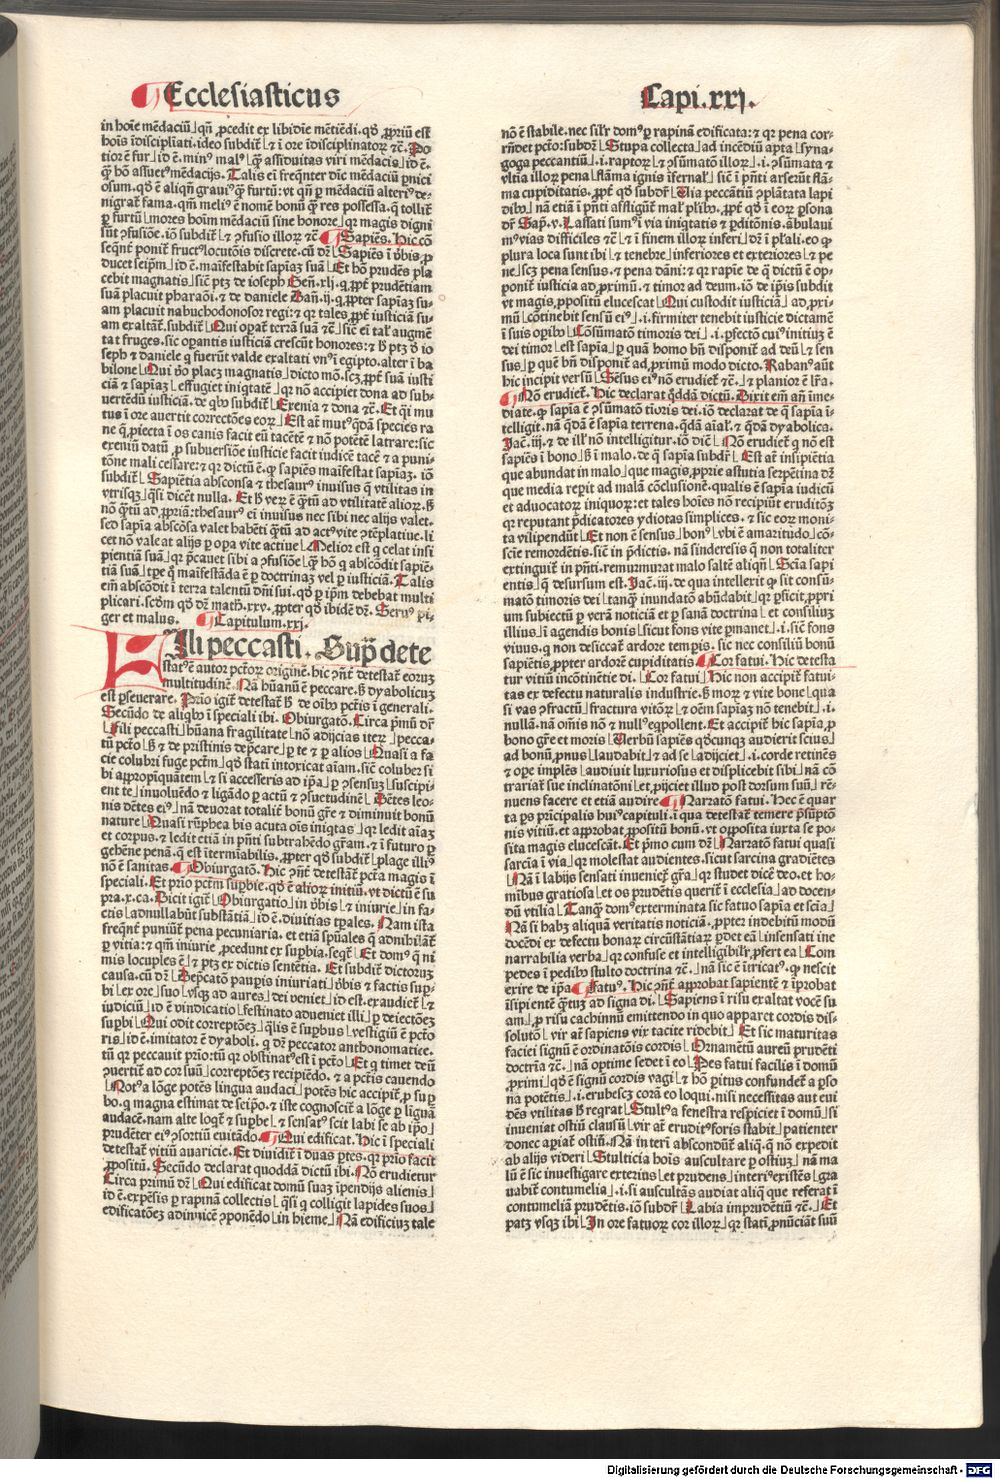 Ecclesiasticus
Capi.xxj.
in hoīe mēdaciū⌋ qñ ꝓcedit ex libidīe mētiēdi. qđ ꝓpriū est
hoīs īdiscipliāti. ideo subdit̄⌊ ⁊ ī ore īdisciplinatoꝝ ⁊c̄. Po
tior ē fur⌋ id ē. minꝰ malꝰ ⌊ꝙ̄ assiduitas viri mēdacis⌋ id ē.
ꝙ̄ hō assuetꝰ mēdacijs. Talis eī freq̄nter dīc mēdaciū ꝑnici
osum. qđ ē aliqñ grauiꝰ ꝙ̄ furtū: vt qñ ꝑ mēdaciū alteriꝰ de-
nigrat̄ fama. qm̄ meliꝰ ē nomē bonū ꝙ̄ res possessa. q̄ tollit̄
ꝑ furtū ⌊mores hoīm mēdaciū sine honore⌋ qꝛ magis digni
sūt ꝯfusiōe. iō subdit̄⌊ ⁊ ꝯfusio illoꝝ ⁊c̄. Sapiēs. Hic cō
seqn̄t̄ ponit̄ fructꝰ locutōis discrete. cū dꝛ̄⌊ Sapiēs ī v̄bis ꝓ
ducet seip̄m⌋ id ē. maīfestabit sapīaꝫ suā⌊ Et hō prudēs pla
cebit magnatis⌋ sic̄ ptꝫ de ioseph Gen̄. xlj. q̄ ꝓpt̄ prudētiam
suā placuit pharaōi. ⁊ de daniele Dan̄. ij. q̄ ꝓpter sapīaꝫ su-
am placuit nabuchodonosor regi: ⁊ qꝛ tales ꝓpt̄ iusticiā su-
am exaltāt̄. subdit̄⌊ Qui oꝑat̄ terrā suā ⁊c̄⌋ sic̄ ei tal̄ augmē
tat fruges. sic oꝑantis iusticiā crescūt honores: ⁊ h̄ ptꝫ d̄ io
seph ⁊ daniele q̄ fuerūt valde exaltati vnꝰ ī egipto. alter ī ba
bilone⌊ Qui v̄o placꝫ magnatis⌋ dicto mō. scꝫ ꝓpt̄ suā iusti
ciā ⁊ sapīaꝫ⌊ effugiet iniqtatē⌋ qꝛ nō accipiet dona ad sub-
uertēdū iusticiā. de qbꝰ subdit̄⌊ Exenia ⁊ dona ⁊c̄. Et q̄i mu
tus ī ore auertit correctōes eoꝝ⌋ Est at̄ mutꝰ q̄dā species ra
ne q̄ ꝓiecta ī os canis facit eū tacētē ⁊ nō potētē latrare: sic
exeniū datū ꝓ subuersiōe iusticie facit iudicē tacē ⁊ a puni-
tōne mali cessare: ⁊ qꝛ dictū ē. ꝙ sapiēs maīfestat sapīaꝫ. iō
subdit̄⌊ Sapiētia absconsa ⁊ thesaurꝰ inuisus q̄ vtilitas in
vtrisqꝫ⌋ q̄si dicēt nulla. Et h̄ veꝝ ē q̄tū ad vtilitatē alioꝝ. h̄
nō q̄tū ad ꝓpriā: thesaurꝰ ei inuisus nec sibi nec alijs valet.
sed sapīa abscōsa valet habēti q̄tū ad actꝰ vite ꝯtēplatiue. li
cet nō valeat alijs ꝑ oꝑa vite actiue⌊ Melior est q̄ celat insi
pientiā suā⌋ qꝛ p̄cauet sibi a ꝯfusiōe⌊ ꝙ̄ hō q̄ abscōdit sapiē-
tiā suā⌋ tꝑe q̄ maīfestāda ē ꝑ doctrinaꝫ vel ꝑ iusticiā. Talis
em̄ abscōdit ī terra talentū dn̄i sui. qđ ꝑ ip̄m debebat multi
plicari. scd̄m qđ dꝛ̄ math̄. xxv. ꝓpter qđ ibidē dꝛ̄. Seruꝰ pi-
ger et malus. Capitulum. xxj.
Fili peccasti. Sup̄ dete
statꝰ ē autor pctōꝝ originē. hic ꝯn̄t̄ detestat̄ eoruꝫ
multitudinē. Nā hūanū ē peccare. h̄ dyabolicuꝫ
est ꝑseuerare. Prio igit̄ detestat̄ h̄ de oībꝰ pctīs ī generali.
Secūdo de aliqbꝰ ī speciali ibi. Obiurgatō. Circa pͥmū dꝛ̄
⌊Fili peccasti⌋ hūana fragilitate⌊ nō adijcias iteꝝ⌋ pecca-
tū pctō⌊ h̄ ⁊ de pristinis dep̄care⌋ ꝑ te ⁊ ꝑ alios⌊ Quasi a fa
cie colubri fuge pctm̄⌋ qđ stati intoxicat aīam. sic̄ colubeꝛ si
bi appropīquātem⌊ ⁊ si accesseris ad ip̄a⌋ ꝑ ꝯsensuꝫ⌊ suscipi-
ent te⌋ inuoluēdo ⁊ ligādo ꝑ actū ⁊ ꝯsuetudinē⌊ Dētes leo-
nis dētes eiꝰ⌋ nā deuorāt totalit̄ bonū gr̄e ⁊ diminuīt bonū
nature⌊ Quasi rūphea bis acuta oīs iniqtas⌋ qꝛ ledit aīaꝫ
et corpus. ⁊ ledit etiā in pn̄ti subtrahēdo gr̄am. ⁊ ī futuro ꝑ
gehēne penā. q̄ est īterniabilis. ꝓpter qđ subdit̄⌊ plage illiꝰ
nō ē sanitas. Obiurgatō. Hic ꝯn̄t̄ detestāt̄ pctā magis ī
speciali. Et prio pctm̄ supbie. qđ ē alioꝝ initiū. vt dictū ē su
pra. x. ca. Dicit igit̄⌊ Obiurgatio⌋ in v̄bis⌊ ⁊ iniurie⌋ in fa-
ctis⌊ adnullabūt substātiā⌋ id ē. diuitias tꝑales. Nam ista
freq̄nt̄ puniūt̄ pena pecuniaria. et etiā sp̄uales q̄ adnihilāt̄
ꝑ vitia: ⁊ qm̄ iniurie ꝓcedunt ex suꝑbia. seq̄t̄⌊ Et domꝰ q̄ ni
mis locuples ē⌋ ⁊ ptꝫ ex dictis sentētia. Et subdit̄ dictoruꝫ
causa. cū dꝛ̄⌊ Dep̄catō pauꝑis iniuriati⌋ v̄bis ⁊ factis suꝑ-
bi⌊ ex ore⌋ suo⌊ vsqꝫ ad aures⌋ dei veniet⌋ id est. exaudiet̄⌊ ⁊
iudiciū⌋ id ē vindicatio⌊ festinato adueniet illi⌋ ꝑ deiectōeꝫ
supbi⌊ Qui odit correptōeꝫ⌋ q̄lis ē suꝑbus⌊ vestigiū ē pctō
ris⌋ id ē. imitator ē dyaboli. q̄ dꝛ̄ peccator anthonomatice.
tū qꝛ peccauit prīo: tū qꝛ obstinatꝰ est ī pctō⌊ Et q̄ timet deū
ꝯuertit̄ ad cor suū⌋ correptōeꝫ recipiēdo. ⁊ a pctīs cauendo
⌊Notꝰ a lōge potēs lingua audaci⌋ potēs hic accipit̄ ꝓ suꝑ
bo. q̄ magna estimat de seip̄o. ⁊ iste cognoscit̄ a lōge ꝑ liguā
audacē. nam alte loqt̄ ⁊ suꝑbe⌊ ⁊ sensatꝰ scit labi se ab ip̄o⌋
prudēter eiꝰ ꝯsortiū euitādo. Qui edificat. Hic ī speciali
detestat̄ vitiū auaricie. Et diuidit̄ ī duas ꝑtes. qꝛ prīo facit
ꝓpositū. Secūdo declarat quoddā dictū ibi. Nō erudietur
Circa primū dꝛ̄⌊ Qui edificat domū suaꝫ īpendijs alienis⌋
id ē. expēsis ꝑ rapinā collectis⌊ q̄si q̄ colligit lapides suos⌋
edificatōeꝫ adinuicē ꝯponēdo⌊ in hieme⌋ Nā edificiuꝫ tale
nō ē stabile. nec sil̄r domꝰ ꝑ rapinā edificata: ⁊ qꝛ pena cor-
rn̄det pctō: subdit̄⌊ Stupa collecta⌋ ad incēdiū apta⌊ syna-
goga peccantiū⌋. i. raptoꝝ⌊ ⁊ ꝯsūmatō illoꝝ⌋. i. ꝯsūmata ⁊
vltīa illoꝝ pena⌊ flāma ignis īfernal̄⌋ sic̄ ī pn̄ti arserūt flā-
ma cupiditatis. ꝓpt̄ qđ subdit̄⌊ Uia peccātiū ꝯplātata lapi
dibꝰ⌋ nā etiā ī pn̄ti affligūt̄ mal̄ pl̄ibꝰ. ꝓpt̄ qđ ī eoꝝ ꝑsona
dꝛ̄ Sap̄. v. Lassati sumꝰ ī via iniqtatis ⁊ ꝑditōnis. ābulaui
mꝰ vias difficiles ⁊c̄⌊ ⁊ ī finem illoꝝ inferi⌋ dꝛ̄ ī pl̄ali. eo ꝙ
plura loca sunt ibi⌊ ⁊ tenebre⌋ inferiores et exteriores⌊ ⁊ pe
ne⌋ scꝫ pena sensus. ⁊ pena dāni: ⁊ qꝛ rapīe de q̄ dictū ē op-
ponit̄ iusticia ad ꝓximū. ⁊ timor ad deum. iō de ip̄is subdit̄
vt magis ꝓpositū elucescat⌊ Qui custodit iusticiā⌋ ad ꝓxi-
mū⌊ cōtinebit sensū eiꝰ⌋. i. firmiter tenebit iusticie dictamē
ī suis oꝑibꝰ⌊ Cōsūmatō timoris dei⌋. i. ꝑfectō cuiꝰ initiuꝫ ē
dei timor⌊ est sapīa⌋ ꝑ quā homo bn̄ disponit̄ ad deū⌊ ⁊ sen
sus⌋ ꝑ quē bn̄ disponit̄ ad ꝓximū modo dicto. Rabanꝰ aūt
hic incipit versū⌊ Sēsus eiꝰ nō erudiet̄ ⁊c̄. ⁊ planior ē lr̄a.
Nō erudiet̄. Hic declarat q̄ddā dictū. Dixit em̄ an̄ ime-
diate. ꝙ sapīa ē ꝯsūmatō tīoris dei. iō declarat de q̄ sapīa ī-
telligit. nā q̄dā ē sapīa terrena. q̄dā aīal̄. ⁊ q̄dā dyabolica.
Jac̄. iij. ⁊ de il̄l nō intelligitur. iō dic̄⌊ Nō erudiet̄ q̄ nō est
sapiēs ī bono⌋ h̄ ī malo. de q̄ sapīa subdit̄⌊ Est at̄ insipiētia
que abundat in malo⌋ que magis ꝓprie astutia serpētina dꝛ̄
que media reꝑit ad malā cōclusionē. qualis ē sapīa iudicū
et aduocatoꝝ iniquoꝝ: et tales hoīes nō recipiūt eruditōeꝫ
qꝛ reputant p̄dicatores ydiotas simplices. ⁊ sic eoꝝ moni-
ta vilipendūt⌊ Et non ē sensus⌋ bonꝰ⌊ vbi ē amaritudo⌋ cō-
scīe remordētis. sic̄ in p̄dictis. nā sinderesis q̄ non totaliter
extinguit̄ in pn̄ti. remurmurat malo saltē aliqn̄⌊ Scīa sapi
entis⌋ q̄ desursum est. Jac̄. iij. de qua intellexit ꝙ sit consū-
matō timoris dei⌊ tanꝙ̄ inundatō abūdabit⌋ qꝛ ꝑficit̄ ꝓpri
um subiectū ꝑ verā noticiā et ꝑ sanā doctrinā⌊ et consiliuꝫ
illius⌋ ī agendis bonis⌊ sicut fons vite ꝑmanet⌋. i. sic̄ fons
viuus. q̄ non desiccat̄ ardore temꝑis. sic nec consiliū bonū
sapiētis ꝓpter ardorē cupiditatis. Cor fatui. Hic detesta
tur vitiū incōtinētie di.⌊ Cor fatui⌋ Hic non accipit̄ fatui-
tas ex defectu naturalis industrie. h̄ moꝝ ⁊ vite bone⌊ qua
si vas ꝯfractū⌋ fractura vitōꝝ⌊ ⁊ oēm sapīaꝫ nō tenebit⌋. i.
nullā. nā om̄is nō ⁊ nullꝰ eq̄pollent. Et accipit̄ hic sapīa ꝓ
bono gr̄e et moris⌊ Uerbū sapiēs qđcunqꝫ audierit scius⌋
ad bonū ꝓnus⌊ laudabit⌊ ⁊ ad se⌊ adijciet⌋. i. corde retinēs
⁊ oꝑe implēs⌊ audiuit luxuriosus et displicebit sibi⌋ nā cō
trariat̄ sue inclinatōni⌊ et ꝓijciet illud post dorsum suū⌋ rē-
nuens facere et etiā audire. Narratō fatui. Hec ē quar
ta ꝑs pͥncipalis huiꝰ capituli. ī qua detestat̄ temere p̄suptō
nis vitiū. et approbat ꝓpositū bonū. vt opposita iuxta se po-
sita magis elucescāt. Et pͥmo cum dꝛ̄⌊ Narratō fatui quasi
sarcīa ī via⌋ qꝛ molestat audientes. sicut sarcina gradiētes
⌊Nā ī labijs sensati inueniet̄ gr̄a⌋ qꝛ studet dicē deo. et ho-
mībus gratiosa⌊ et os prudētis querit̄ ī ecclesia⌋ ad docen-
dū vtilia⌊ Tanꝙ̄ domꝰ exterminata sic fatuo sapīa et scīa⌋
Nā si habꝫ aliquā veritatis noticiā. ꝓptez indebitū modū
docēdi ex defectu bonaꝝ circūstātiaꝝ ꝑdet eā⌊ insensati ine
narrabilia verba⌋ qꝛ confuse et intelligibil̄r ꝓfert ea⌊ Com
pedes ī pedibꝰ stulto doctrina ⁊c̄.⌋ nā sic ē ītricatꝰ. ꝙ nescit
exire de ip̄a. Fatuꝰ. Hic ꝯn̄t̄ approbat sapientē ⁊ īprobat
īsipientē q̄tuꝫ ad signa di.⌊ Sapiens ī risu exaltat vocē su
am⌋ ꝓ risu cachinnū emittendo in quo apparet cordis dis-
solutō⌊ vir at̄ sapiens vix tacite ridebit⌋ Et sic maturitas
faciei signū ē ordinatōis cordis⌊ Ornamētū aureū prudēti
doctrīa ⁊c̄.⌋ nā optime sedet ī eo⌊ Pes fatui facilis ī domū
ꝓximi⌋ qđ ē signū cordis vagi⌊ ⁊ hō ꝑitus confundet̄ a ꝑso
na potētis⌋. i. erubescꝫ corā eo loqui. nisi necessitas aut eui
dēs vtilitas h̄ reqrat⌊ Stultꝰ a fenestra respiciet ī domū⌋ si
inueniat ostiū clausū⌊ vir at̄ eruditꝰ foris stabit⌋ patienter
donec aꝑiat̄ ostiū. Nā in terī abscondūt̄ aliq̄. q̄ nō expedit
ab alijs videri⌊ Stulticia hoīs auscultare ꝑ ostiuꝫ⌋ nā ma
lū ē sic inuestigare exterius⌊ et prudens⌋ interiꝰ existēs⌊ gra
uabit̄ contumelia⌋. i. si auscultās audiat aliq̄ que referat ī
contumeliā prudētis. iō subdit̄⌊ Labia imprudētiū ⁊c̄.⌋ Et
patꝫ vsqꝫ ibi⌊ In ore fatuoꝝ cor illoꝝ⌋ qꝛ stati ꝓnūciāt suū
Digitalisierung gefördert durch die Deutsche Forschungsgemeinschaft - DFG